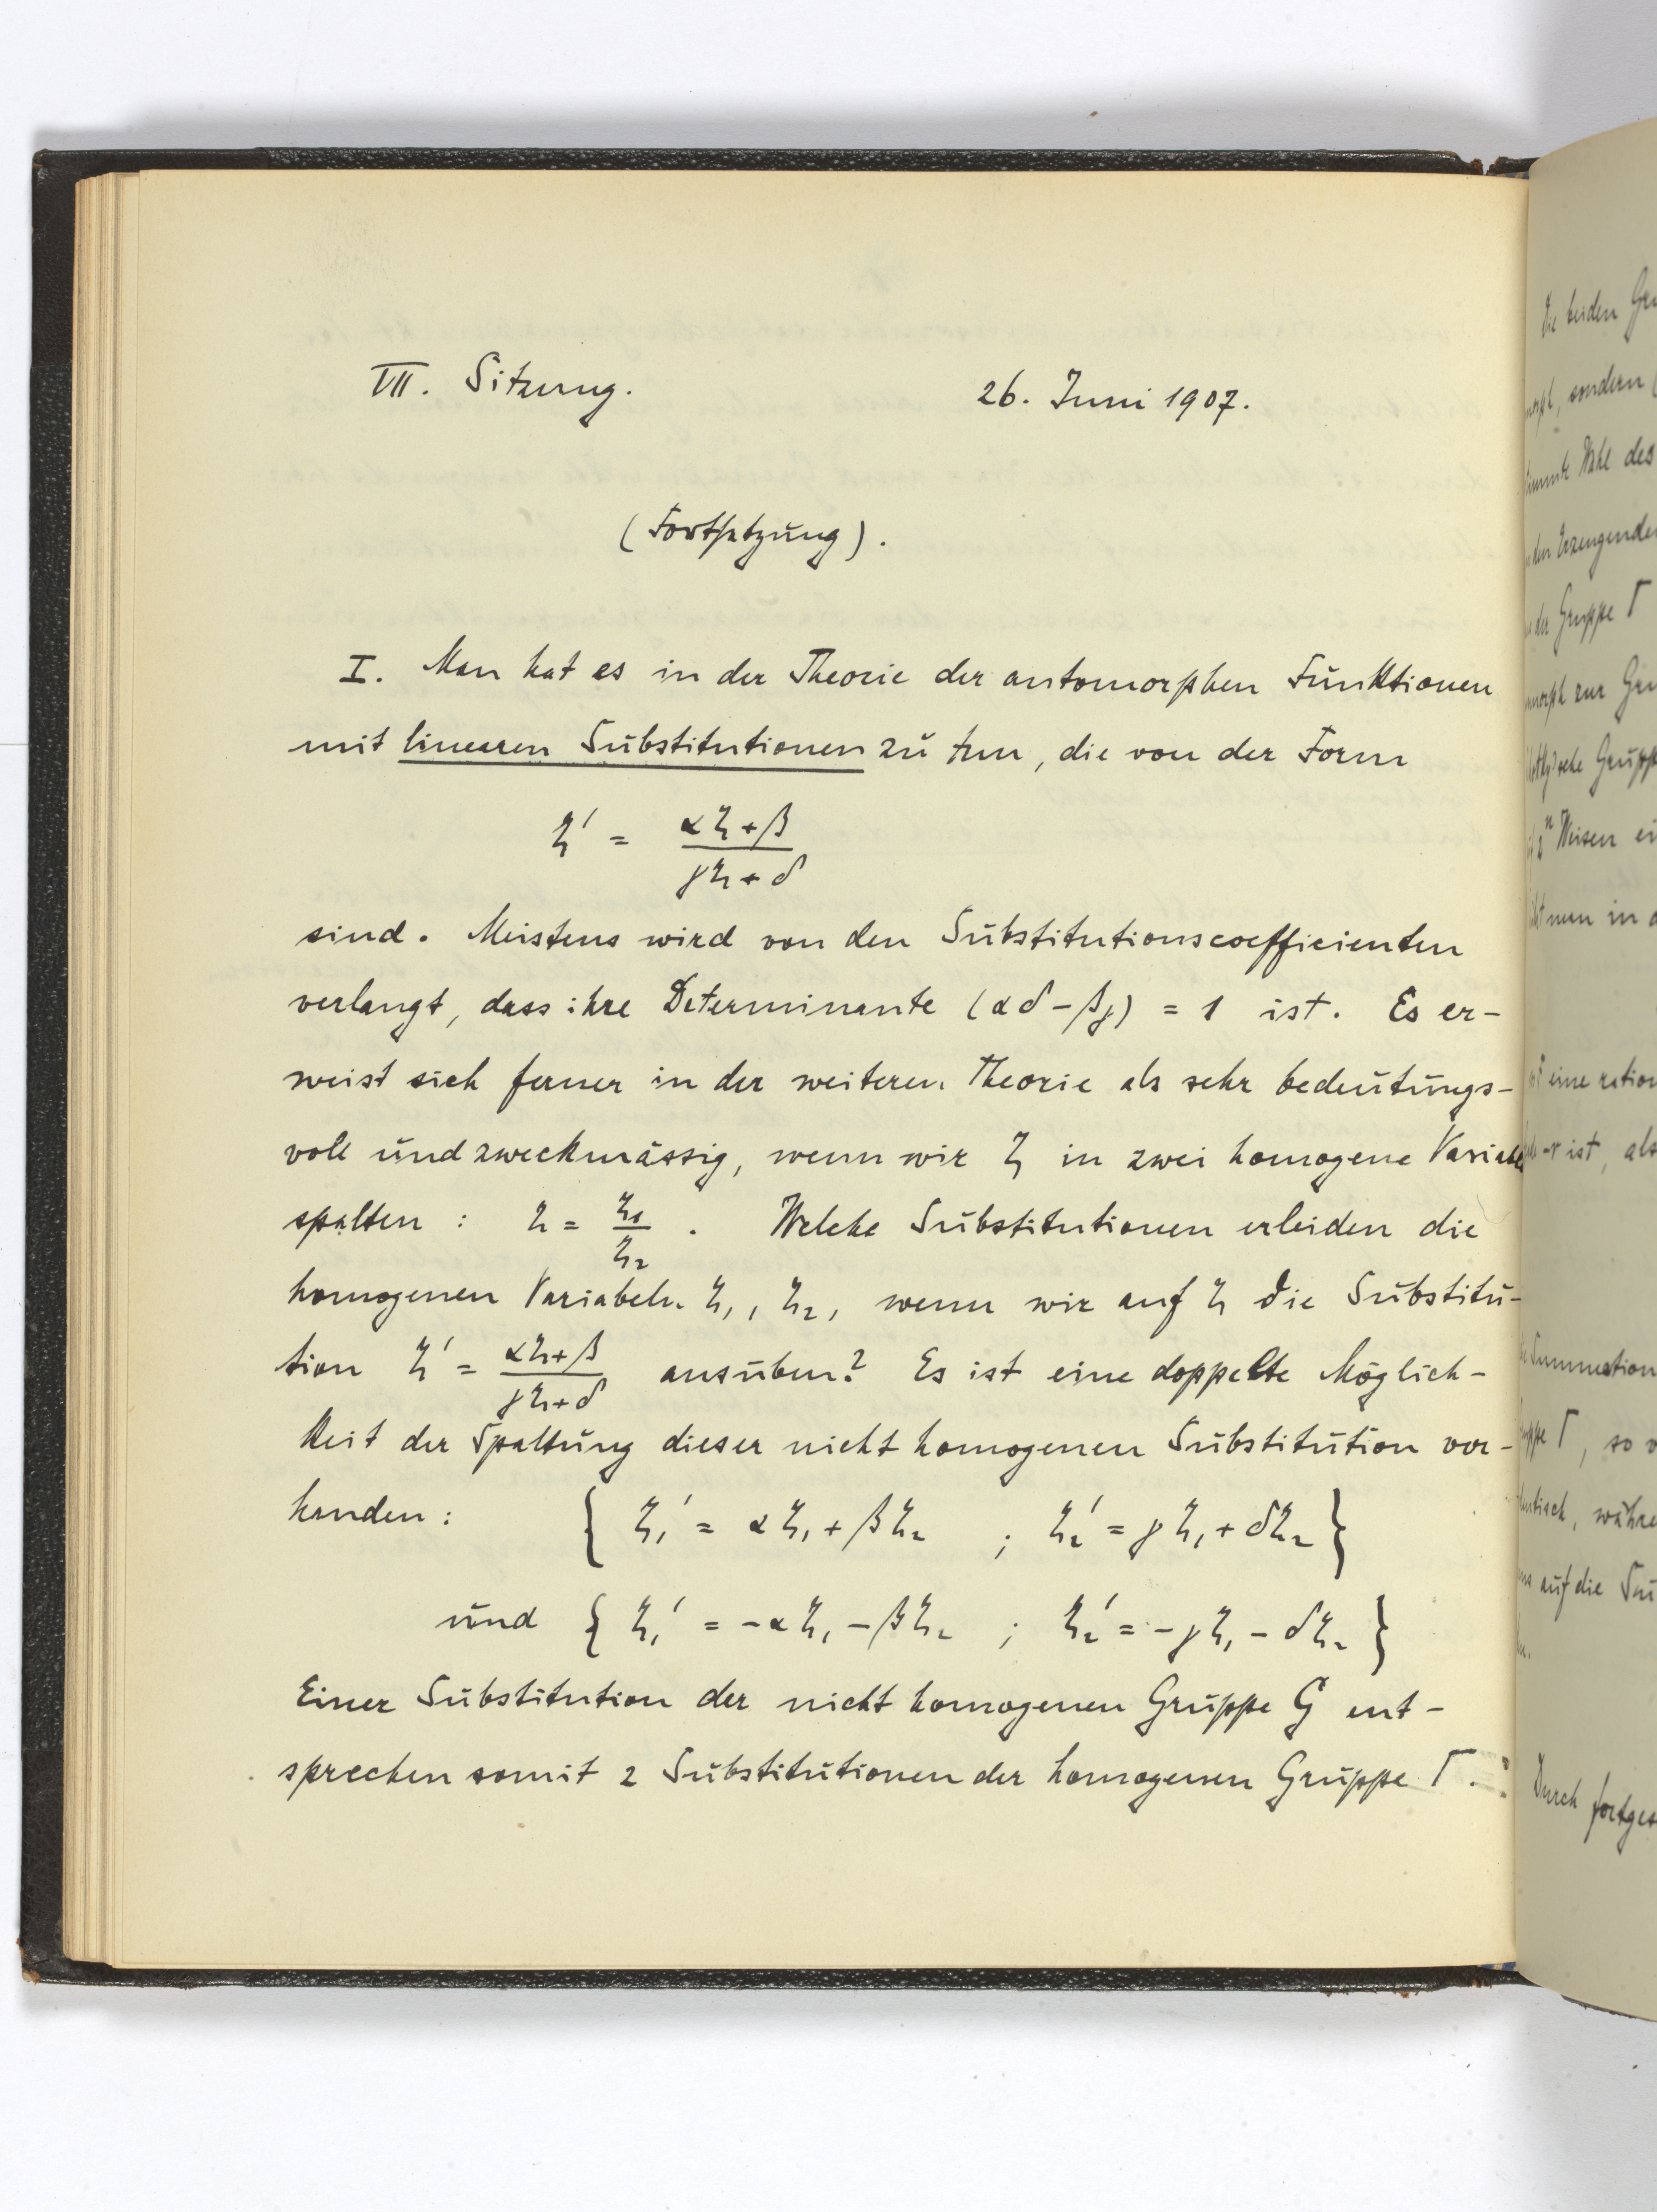 VII. Sitzung. 26. Juni 1907.
(Fortsetzung).
I. Man hat es in der Theorie der automorphen Funktionen
mit linearen Substitutionen zu tun, die von der Form
ζ' = (αζ+β)/(γζ+δ)
sind. Meistens wird von den Substitutionscoefficienten
verlangt, dass ihre Determinante (αδ-βγ) = 1 ist. Es er-
weist sich ferner in der weiteren Theorie als sehr bedeutungs-
voll und zweckmässig, wenn wir ζ in zwei homogene Variabeln
spalten : ζ = ζ₁/ζ₂ . Welche Substitutionen erleiden die
homogenen Variabeln ζ₁, ζ₂, wenn wir auf ζ die Substitu-
tion ζ' = (αζ+β)/(γζ+δ) ausüben? Es ist eine doppelte Möglich-
keit der Spaltung dieser nicht homogenen Substitution vor-
handen : { ζ₁' = αζ₁ + βζ₂ ; ζ₂' = γζ₁ + δζ₂ }
und { ζ₁' = -αζ₁ - βζ₂ ; ζ₂' = -γζ₁ - δζ₂ }
Einer Substitution der nicht homogenen Gruppe G ent-
sprechen somit 2 Substitutionen der homogenen Gruppe Γ.
Die beiden
sondern
Wahl des
der Gruppe Γ
Weisen
man in
eine
ist, als
Γ, so
auf die
Durch